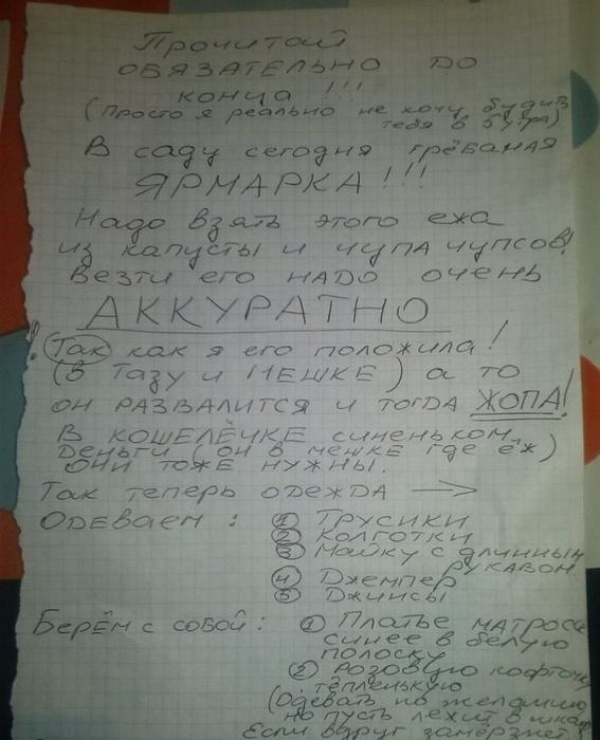 Прочитай
ОБЯЗАТЕЛЬНО ДО
конца !!!
(просто я реально не хочу будить
тебя в 6 утра)
В саду сегодня грёбаная
ЯРМАРКА!!!
Надо взять этого ежа
из капусты и чупа чупсов!
Везти его НАДО очень
АККУРАТНО
! Так как я его положила!
(в тазу и МЕШКЕ) а то
он РАЗВАЛИТСЯ и тогда ЖОПА!
В КОШЕЛЁЧКЕ синеньком
деньги (он в мешке где ёж)
они тоже нужны.
Так теперь одежда →
Одеваем: ① Трусики
② Колготки
③ Майку с длинным
рукавом
④ Джемпер
⑤ Джинсы
Берём с собой: ① Платье матроск
синее в белую
полоску
② розовую кофточку
тёпленькую
(Одевать по желанию
но пусть лежит в шкаф
Если вдруг замёрзнет